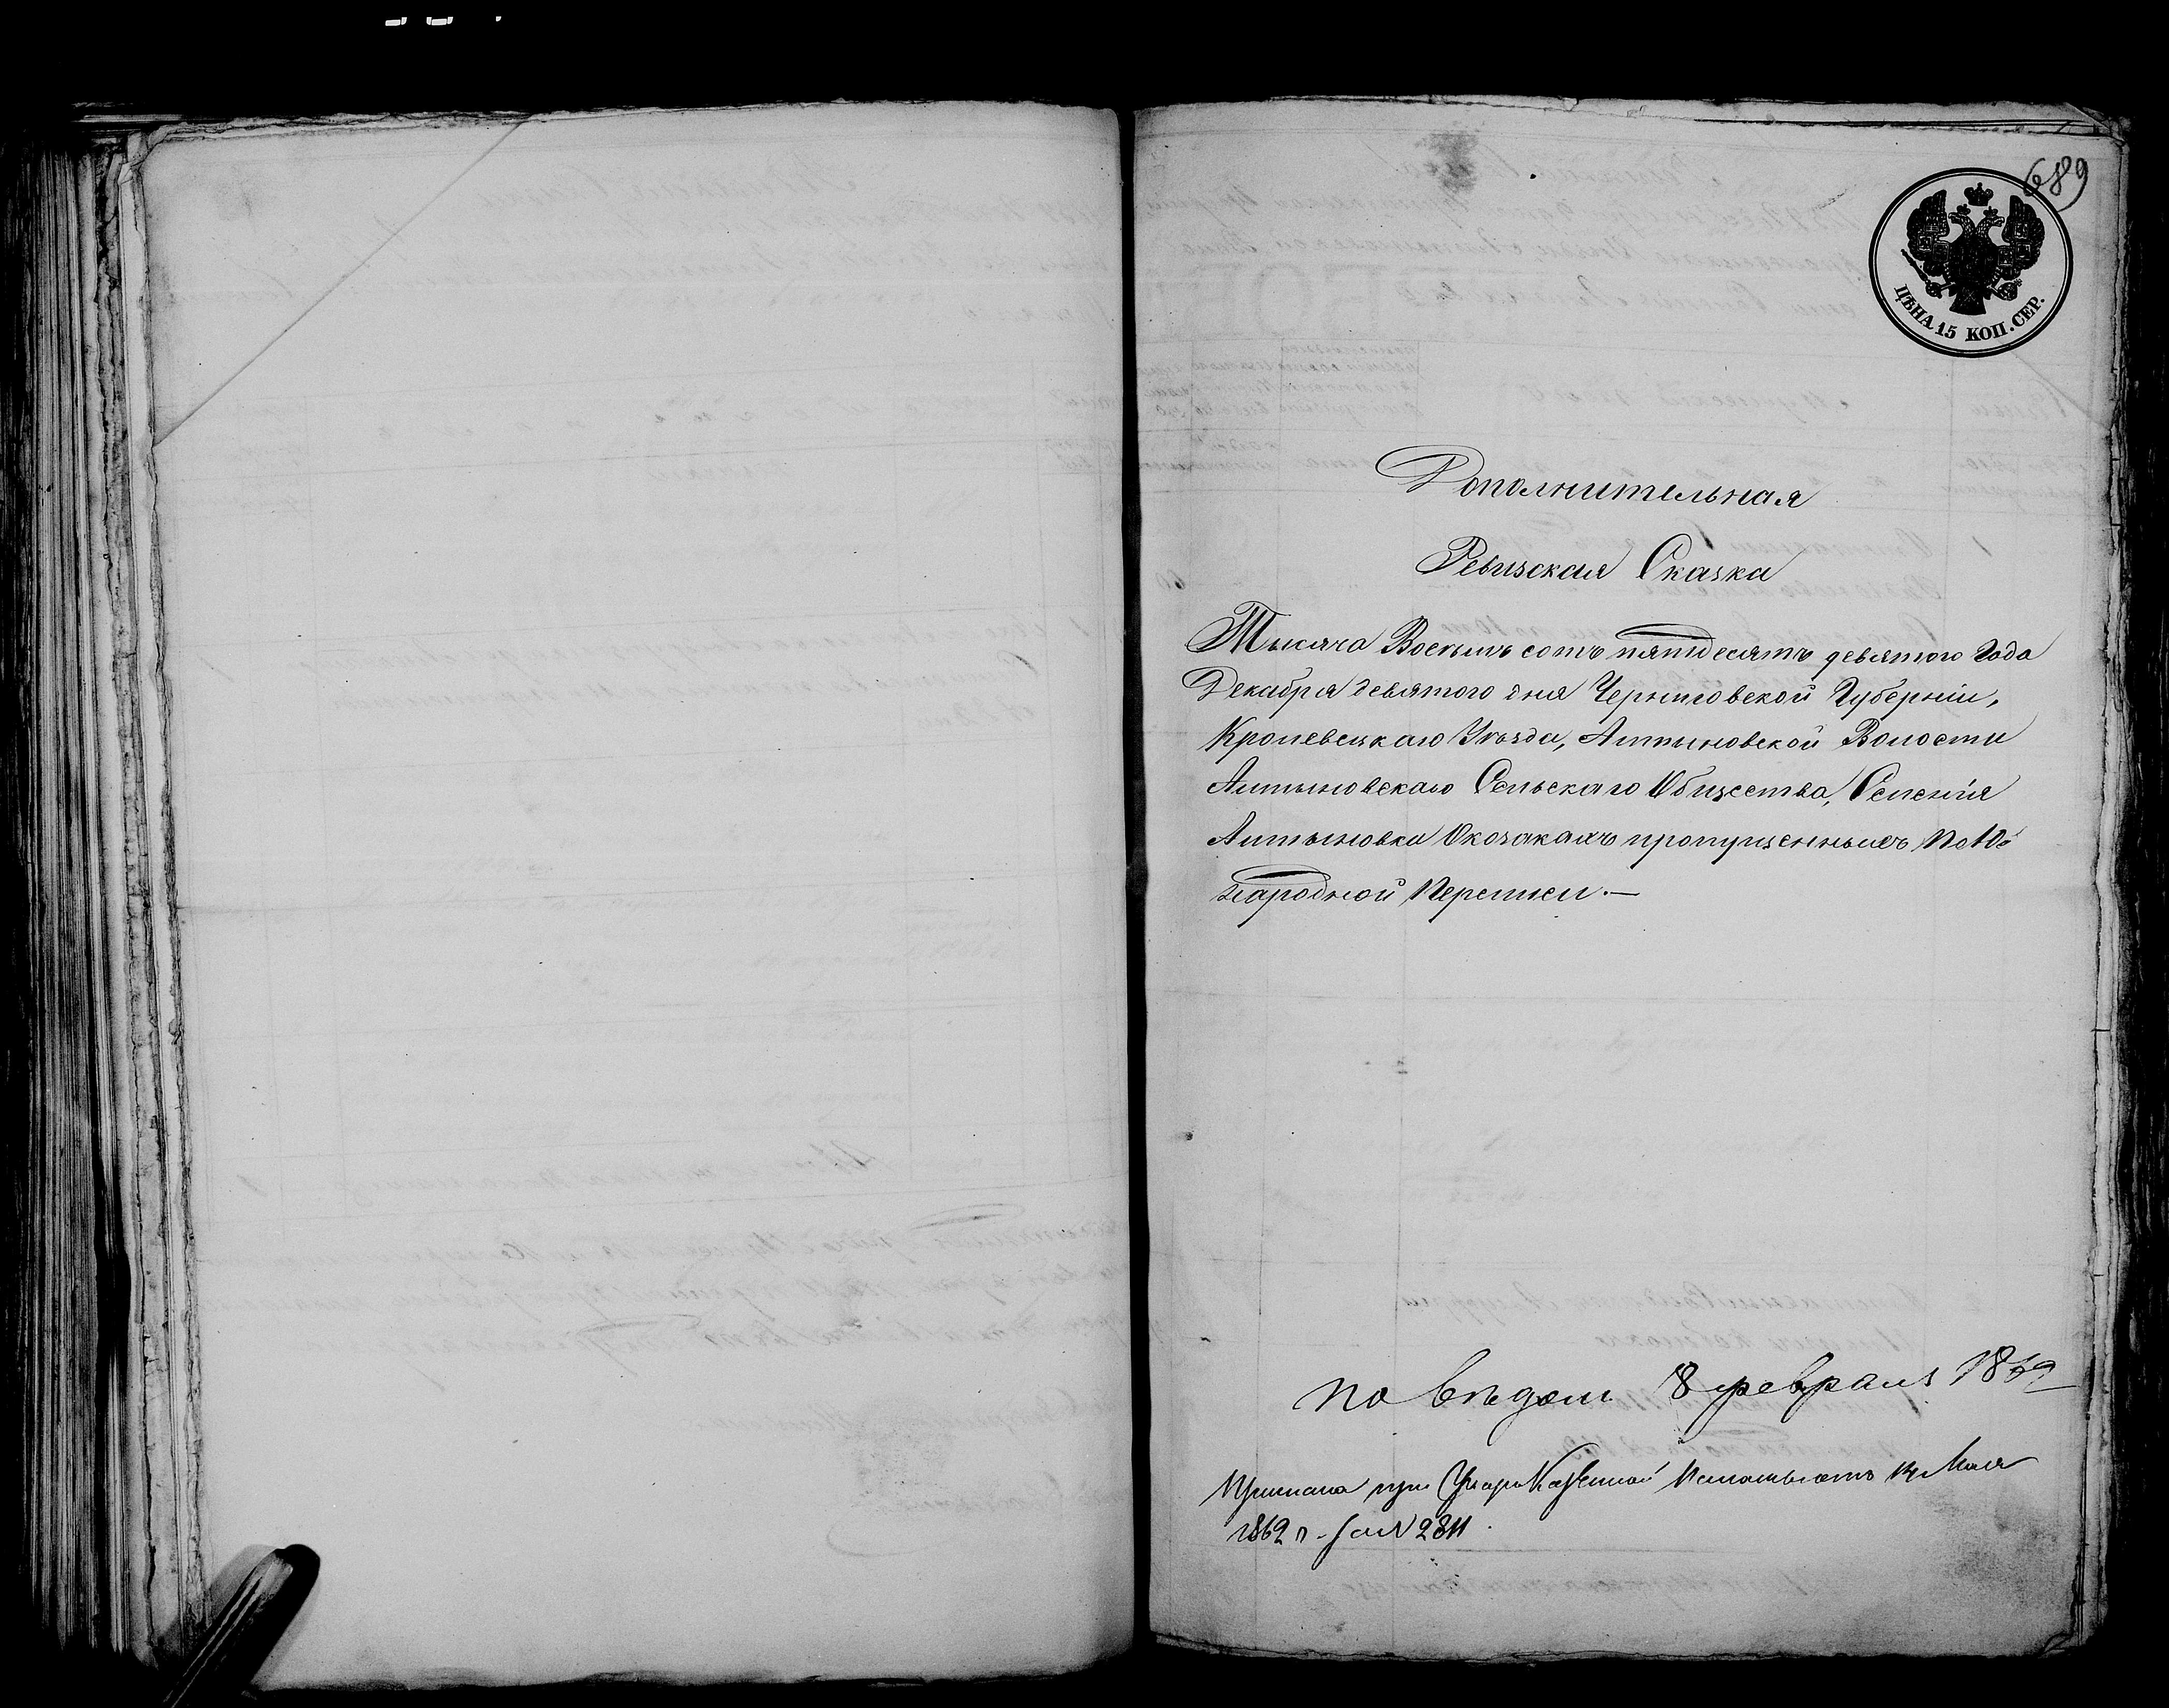 689
ЦѢНА 15 КОП. СЕР.
Дополнительная
Ревизская Сказка
Тысяча Восемь сотъ пятдесятъ девятого Года
Декабря девятого дня Черниговской Губерніи,
Кролевецкаго Уѣзда, Алтыновской Волости
Алтыновскаго Сельскаго Общества, Селенія
Алтыновка Окозакахъ пропущенныхъ По 10й
народной Переписи. —
по вѣдом 8 февраля
при Указѣ Казенной Палаты отъ Мая
1862 г. за N 2811